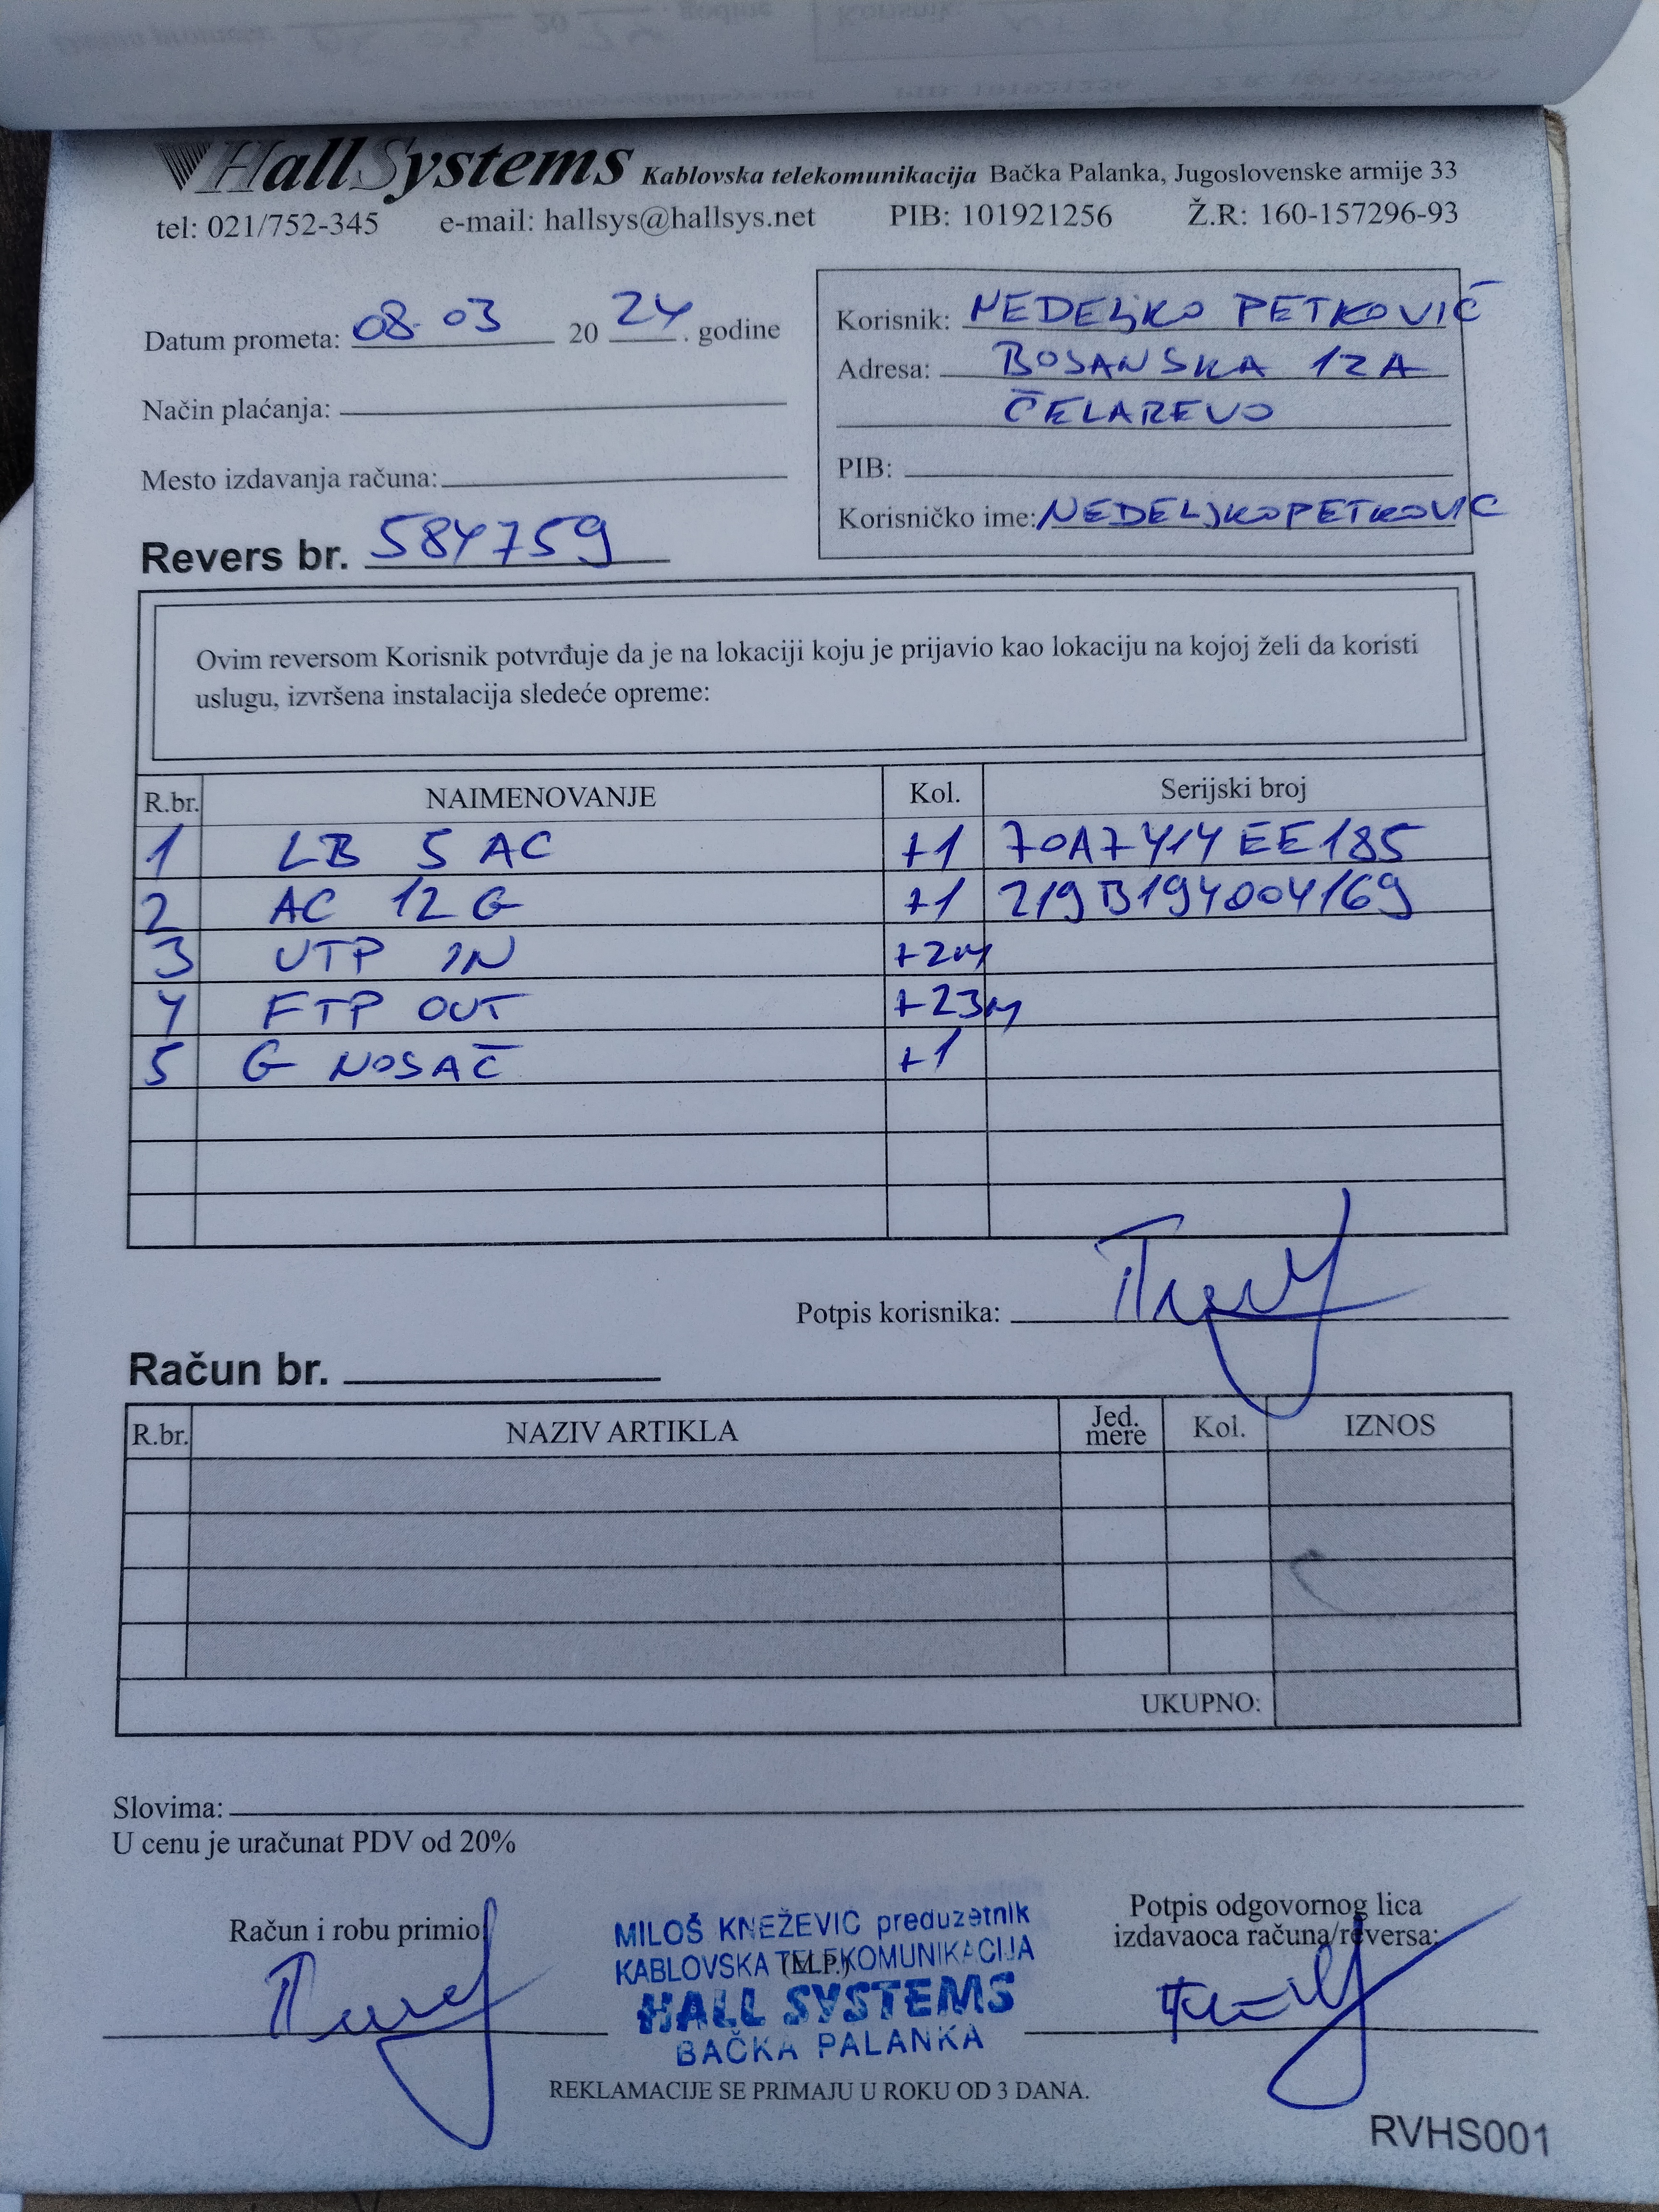 HallSystems Kablovska telekomunikacija Bačka Palanka, Jugoslovenske armije 33
tel: 021/752-345 e-mail: hallsys@hallsys.net PIB: 101921256 Ž.R: 160-157296-93
Datum prometa: 08. 03 20 24. godine
Način plaćanja:
Mesto izdavanja računa:
Revers br. 584759
Korisnik: NEDELJKO PETKOVIĆ
Adresa: BOSANSKA 12A
ČELAREVO
PIB:
Korisničko ime: NEDELJKOPETKOVIC
Ovim reversom Korisnik potvrđuje da je na lokaciji koju je prijavio kao lokaciju na kojoj želi da koristi
uslugu, izvršena instalacija sledeće opreme:
R.br. NAIMENOVANJE Kol. Serijski broj
1 LB 5 AC +1 70A7414EE185
2 AC 12 G +1 219B194004169
3 UTP IN +2m
4 FTP OUT +23m
5 G NOSAČ +1
Potpis korisnika:
Račun br.
R.br. NAZIV ARTIKLA Jed. mere Kol. IZNOS
UKUPNO:
Slovima:
U cenu je uračunat PDV od 20%
Račun i robu primio
MILOŠ KNEŽEVIĆ preduzetnik
KABLOVSKA TELEKOMUNIKACIJA
(M.P.)
HALL SYSTEMS
BAČKA PALANKA
Potpis odgovornog lica
izdavaoca računa/reversa:
REKLAMACIJE SE PRIMAJU U ROKU OD 3 DANA.
RVHS001